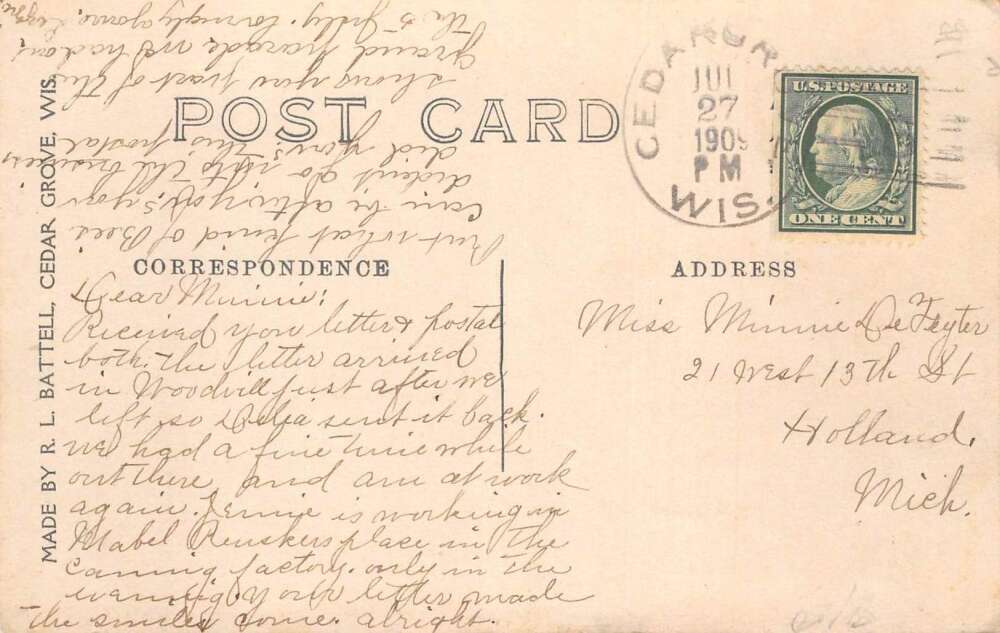 POST CARD
CEDAR GR
JUL
27
1909
PM
WIS.
U.S. POSTAGE
ONE CENT
MADE BY R. L. BATTELL, CEDAR GROVE, WIS.
CORRESPONDENCE
ADDRESS
Dear Minnie:
Received your letter & postal
both. the letter arrived
in Woodville just after we
left so Delia sent it back.
we had a fine time while
out there, and am at work
again. Jennie is working in
Mabel Renskers place in the
canning factory. only in the
evening. Your letter made
the smiles come. alright.
But what kind of Bees
can be after
didn't go into the business
did you? this postal
shows you part of the
grand parade we had on
the 5 July.
Miss Minnie De Feyter
21 West 13th St
Holland,
Mich.